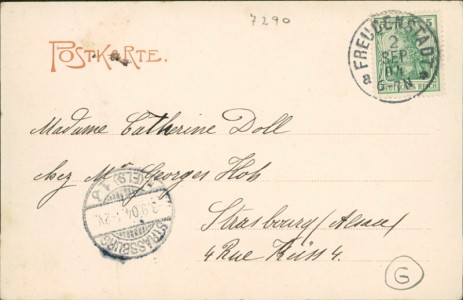 7290
POSTKARTE.
5
FREUDENSTADT
2
SEP
04
a 6-7N *
Madame Catherine Doll
chez Mr Georges Hoh
Strasbourg (Alsace)
4 Rue Küss 4.
STRASSBURG
(ELS)
3.9.04
G